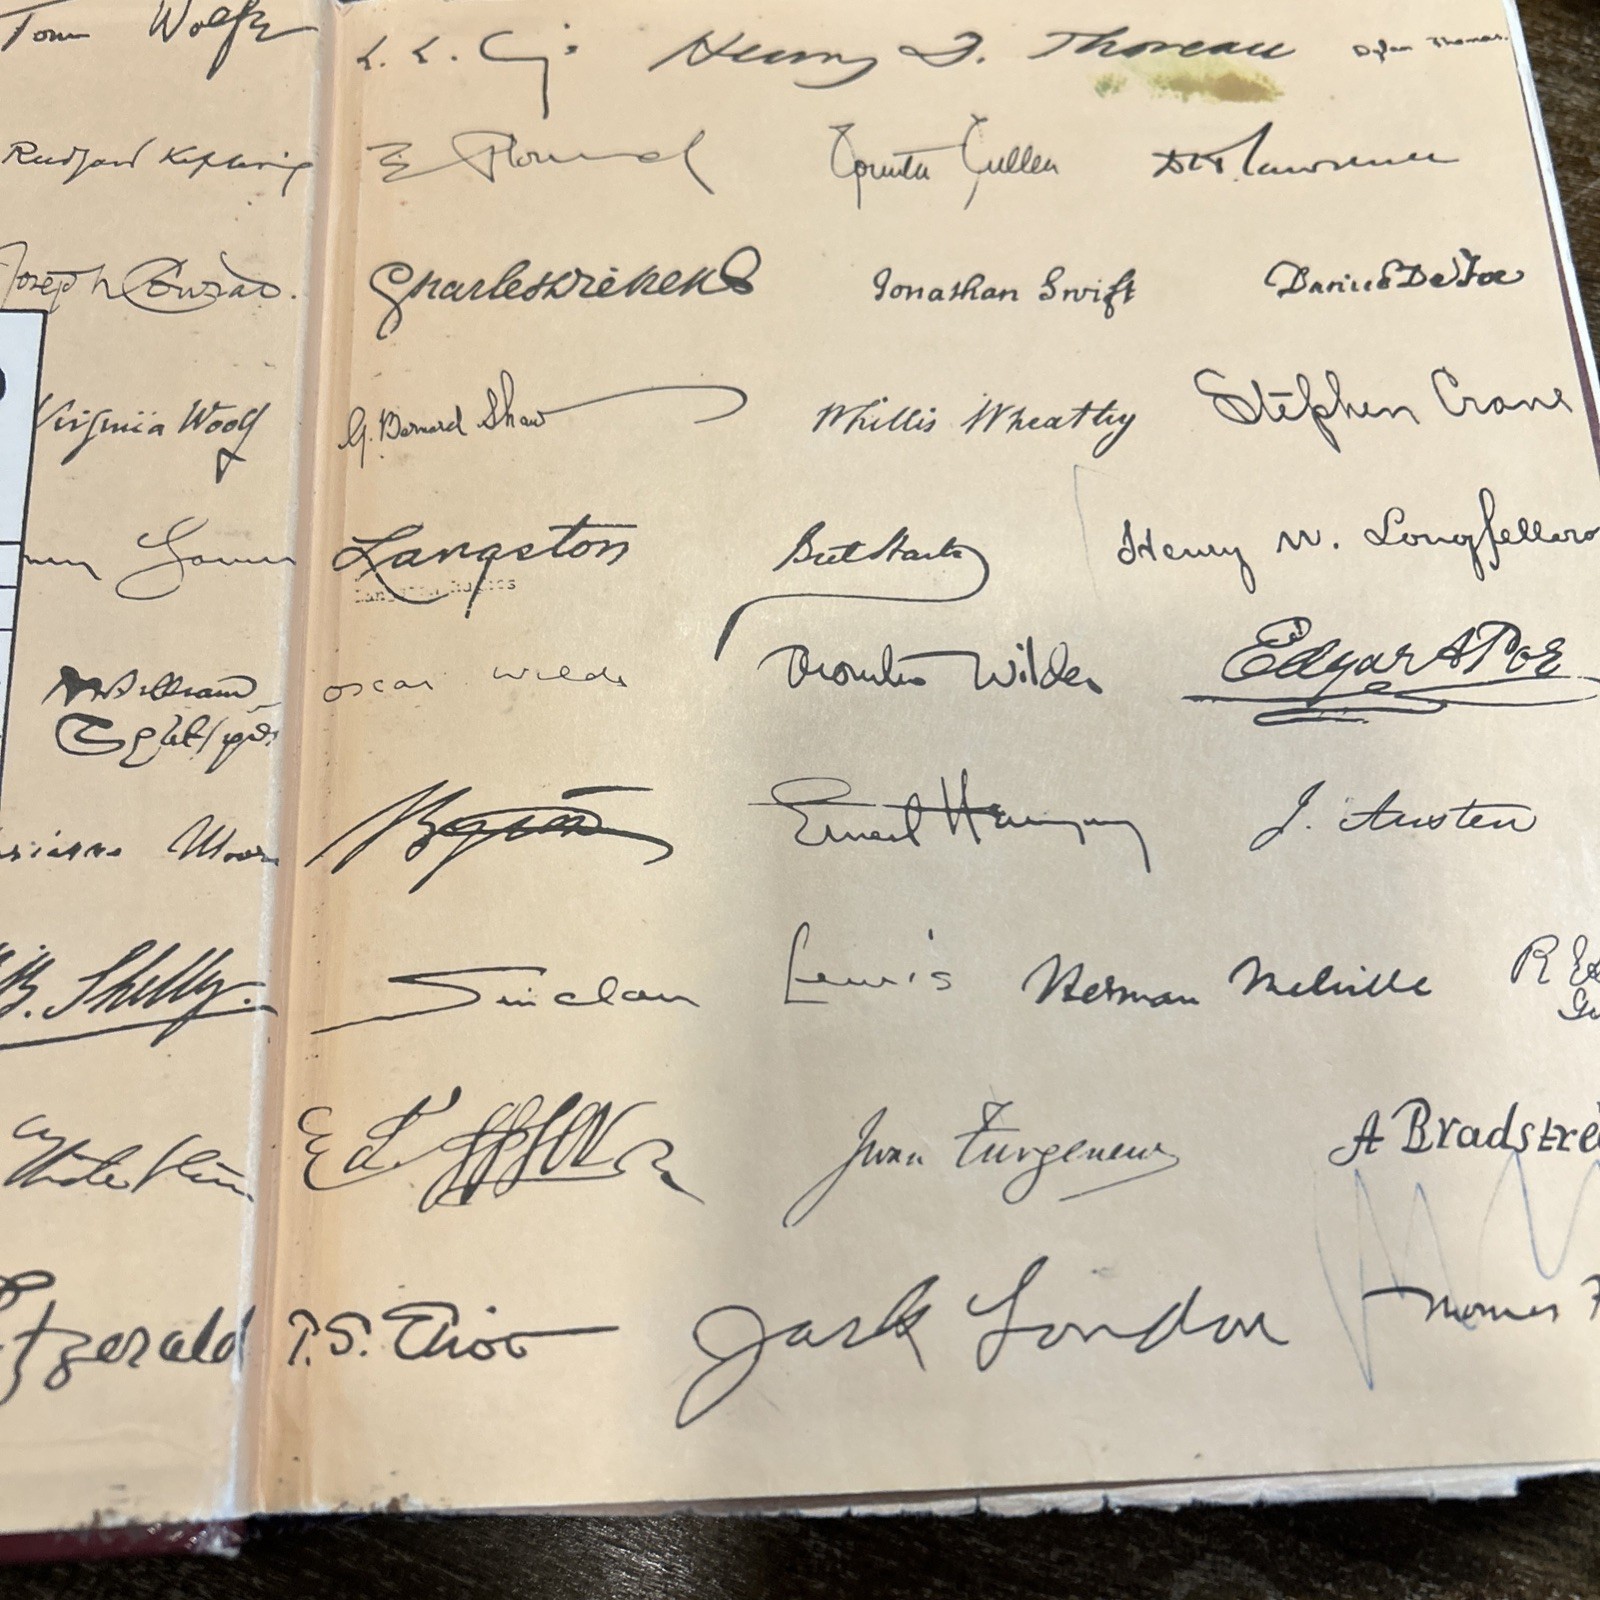 Tom Wolfe
Henry D. Thoreau
Dylan Thomas.
Rudyard Kipling
E Pound
Countee Cullen
D. H. Lawrence
Joseph Conrad.
Charles Dickens
Jonathan Swift
Daniel DeFoe
Virginia Woolf
G. Bernard Shaw
Phillis Wheatley
Stephen Crane
Langston
Langston Hughes
Bret Harte
Henry W. Longfellow
William
Oscar Wilde
Thornton Wilder
Edgar A Poe
Moore
Byron
Ernest Hemingway
J. Austen
B. Shelley.
Sinclair Lewis
Herman Melville
R
Ivan Turgenew
A Bradstre
tzgerald
T. S. Eliot
Jack London
Thomas